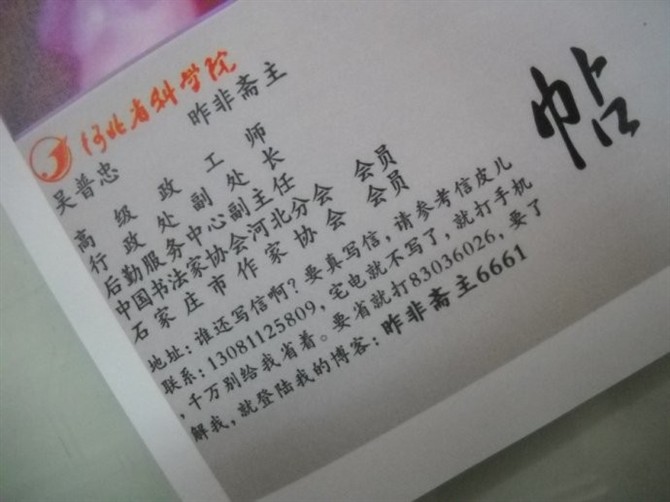 河北省科学院
昨非斋主
吴普忠
高级政工师
行政处副处长
后勤服务中心副主任
中国书法家协会河北分会 会员
石家庄市作家协会 会员
地址:谁还写信啊?要真写信,请参考信皮儿
联系:13081125809,宅电就不写了,就打手机
,千万别给我省着。要省就打83036026,要了
解我,就登陆我的博客:昨非斋主6661
帖